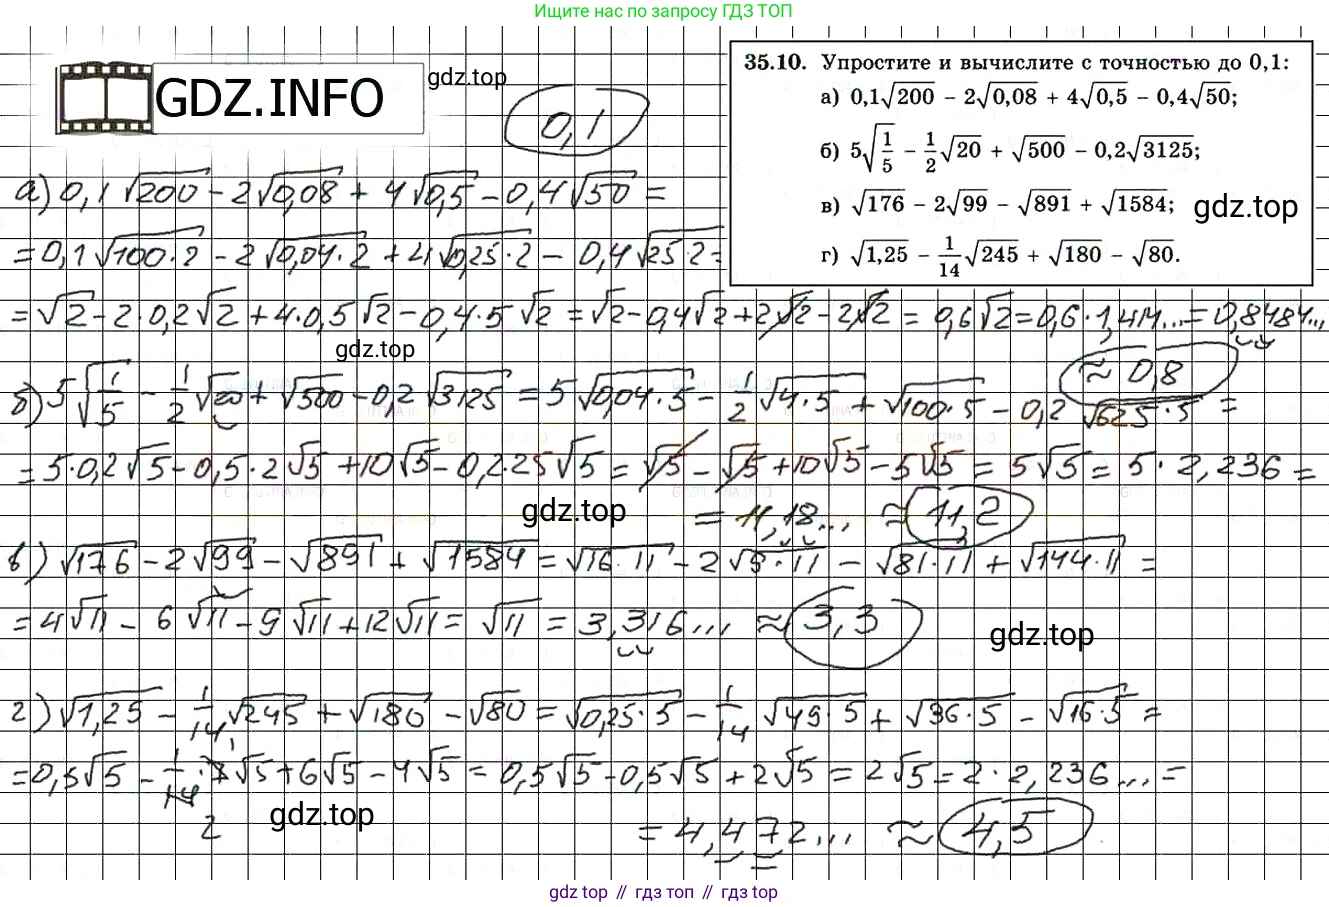 Ищите нас по запросу ГДЗ ТОП
GDZ.INFO
gdz.top
0,1
35.10. Упростите и вычислите с точностью до 0,1:
а) 0,1√200 − 2√0,08 + 4√0,5 − 0,4√50;
б) 5√(1/5) − 1/2√20 + √500 − 0,2√3125;
в) √176 − 2√99 − √891 + √1584;
gdz.top
г) √1,25 − 1/14√245 + √180 − √80.
а) 0,1√200 − 2√0,08 + 4√0,5 − 0,4√50 =
= 0,1√100·2 − 2√0,04·2 + 4√0,25·2 − 0,4√25·2 =
= √2 − 2·0,2√2 + 4·0,5√2 − 0,4·5√2 = √2 − 0,4√2 + 2√2 − 2√2 = 0,6√2 = 0,6·1,414... = 0,8484...,
gdz.top
≈ 0,8
б) 5√(1/5) − 1/2√20 + √500 − 0,2√3125 = 5√0,04·5 − 1/2√4·5 + √100·5 − 0,2√625·5 =
= 5·0,2√5 − 0,5·2√5 + 10√5 − 0,2·25√5 = √5 − √5 + 10√5 − 5√5 = 5√5 = 5·2,236 =
gdz.top
= 11,18..., ≈ 11,2
в) √176 − 2√99 − √891 + √1584 = √16·11 − 2√9·11 − √81·11 + √144·11 =
= 4√11 − 6√11 − 9√11 + 12√11 = √11 = 3,316... ≈ 3,3
gdz.top
г) √1,25 − 1/14√245 + √180 − √80 = √0,25·5 − 1/14√49·5 + √36·5 − √16·5 =
= 0,5√5 − 1/14·7√5 + 6√5 − 4√5 = 0,5√5 − 0,5√5 + 2√5 = 2√5 = 2·2,236... =
gdz.top
= 4,472... ≈ 4,5
gdz top // гдз топ // гдз top